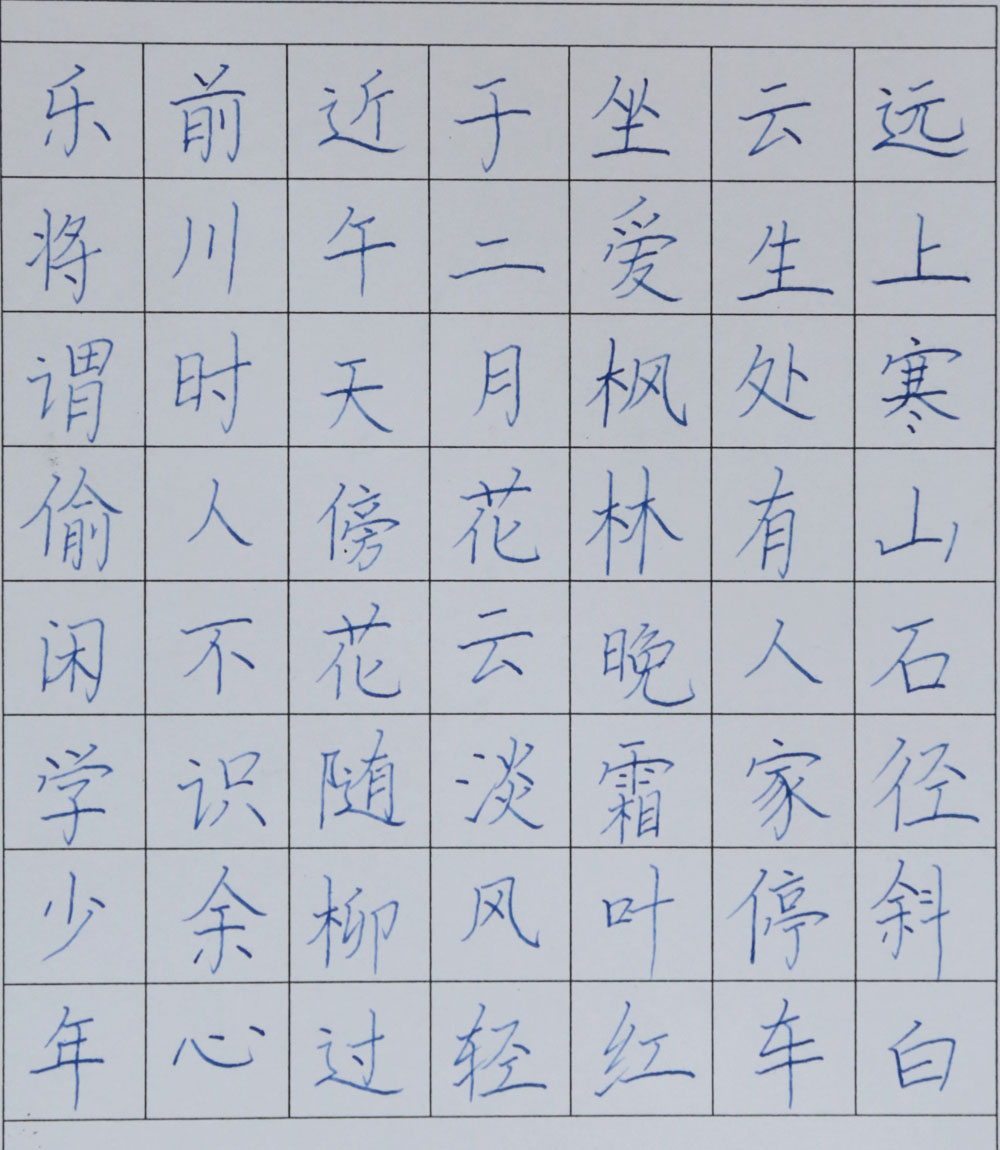 远上寒山石径斜白
云生处有人家停车
坐爱枫林晚霜叶红
于二月花云淡风轻
近午天傍花随柳过
前川时人不识余心
乐将谓偷闲学少年